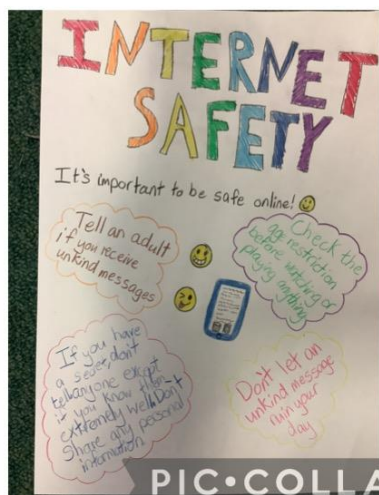 INTERNET
SAFETY
It's important to be safe online!
Tell an adult
if you receive
unkind messages
Check the
ag restriction
before watching or
playing anything
If you have
a secret, don't
tell anyone except
if you know them
extremely well. Don't
share any personal
information
Don't let an
unkind message
ruin your
day
PIC•COLLA